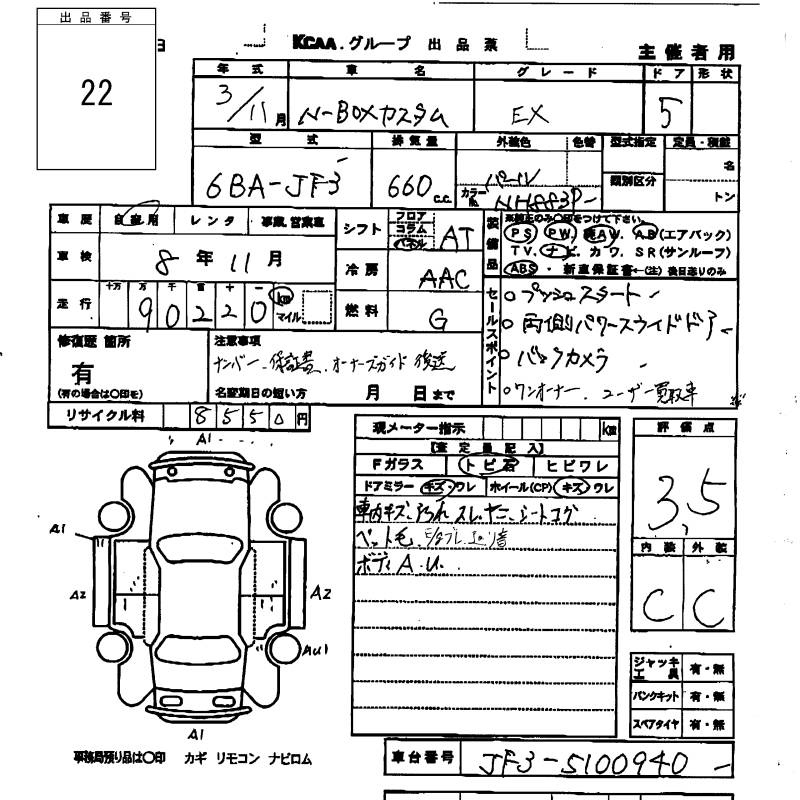 出品番号
22
KCAA.グループ 出品票
主催者用
年式 車名 グレード ドア 形状
3/11月 N-BOXカスタム EX 5
型式 排気量 外装色 色替 型式指定 定員・積載
6BA-JF3 660 c.c. パール カラーNo. NH883P 類別区分 名 トン
車歴 自家用 レンタ 事業、営業車
車検 8年11月
走行 十万 万 千 百 十 一
90220 km マイル
シフト フロア コラム パネル AT
冷房 AAC
燃料 G
装備品 ※純正のみ○印をつけて下さい。
PS PW 純AW. AB(エアバッグ)
TV. ナビ. カワ. SR(サンルーフ)
ABS・新車保証書←(注)後日送りのみ
セールスポイント
○プッシュスタート
○両側パワースライドドアー
○バックカメラ
○ワンオーナー、ユーザー買取車
修復歴 箇所
有
(有の場合は○印を)
注意事項
ナンバー、保証書、オーナーズガイド後送
名変期日の短い方 月 日まで
リサイクル料 8550円
現メーター指示 km
【査定員記入】
Fガラス トビ石 ヒビワレ
ドアミラー キズ・ワレ ホイール(CP) キズ・ワレ
車内キズ、汚れ、スレ、ヤニ、シートコゲ
ペット毛、
ボディ A.U.
評価点
3.5
内装 外装
C C
A1
A1
A2
A2
AU1
A1
ジャッキ工具 有・無
パンクキット 有・無
スペアタイヤ 有・無
事務局預り品は○印 カギ リモコン ナビロム
車台番号 JF3-5100940